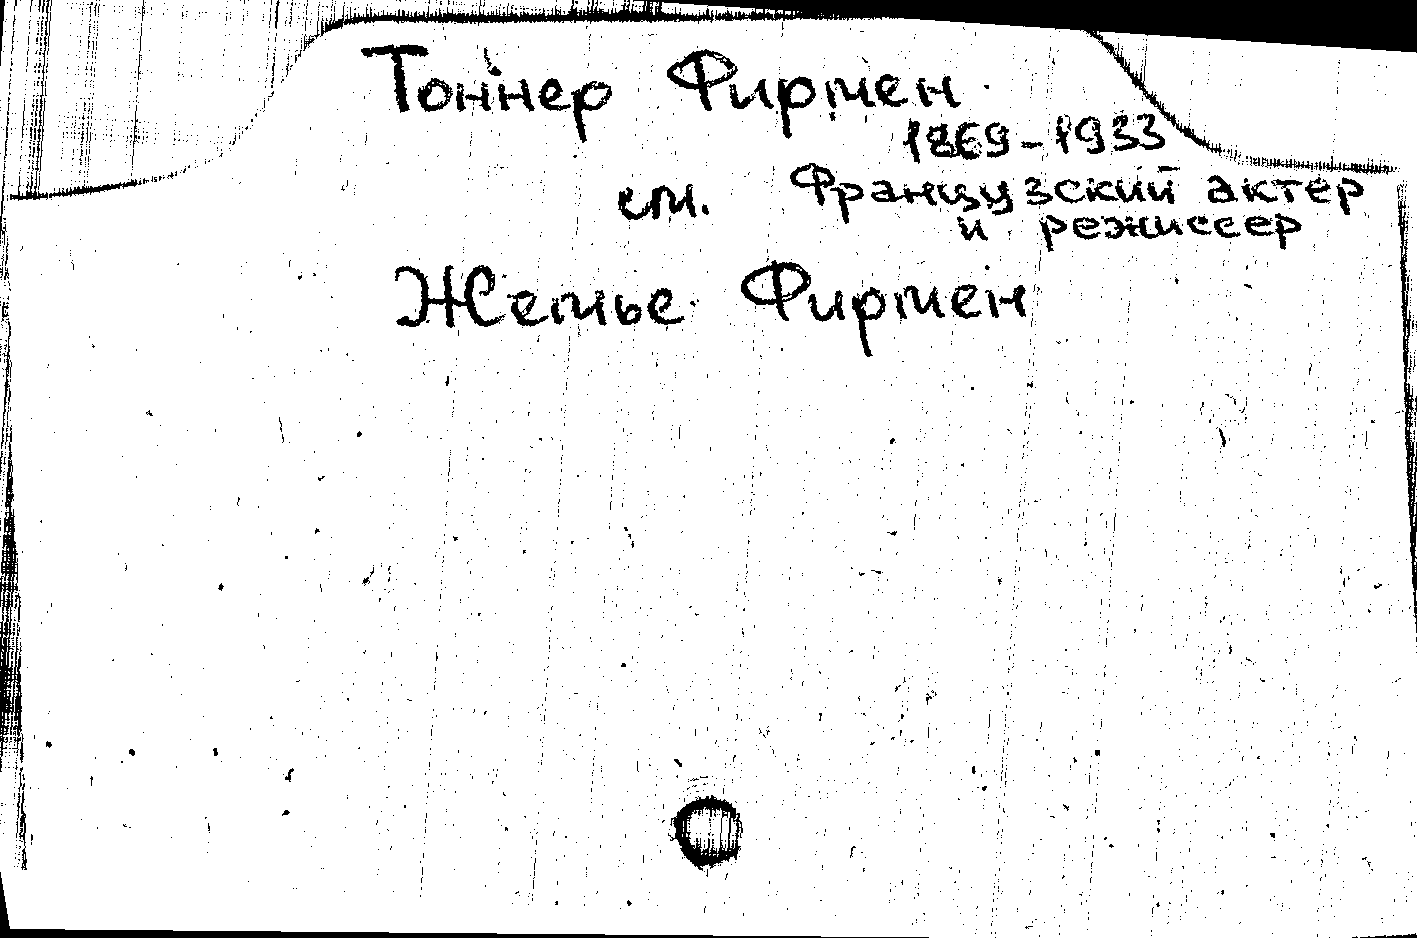 Тоннер Фирмен
1869-1933
см. Французский актер
и режиссер
Жемье Фирмен